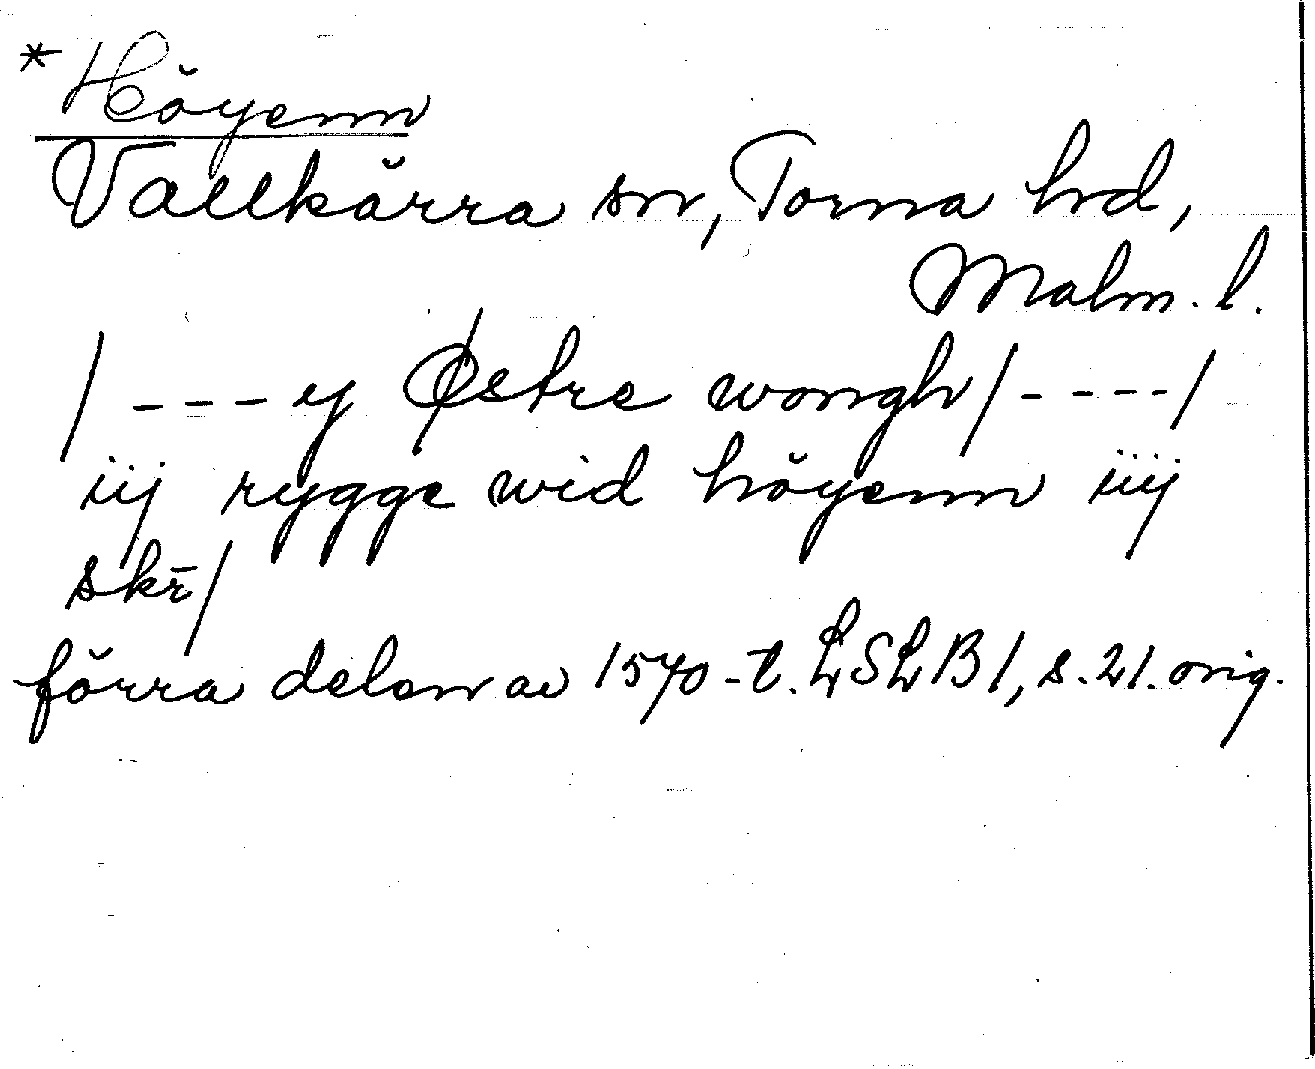 * Höyenn
Vallkärra sn, Torna hd,
Malm. l.
/ - - - y Østre wongh / - - - - /
iij rygge wid höyenn iiij
skr̄ /
förra delen av 1570-t. LSLB 1, s. 21. orig.